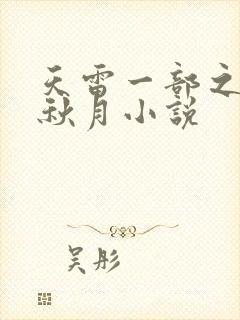 天雷一部之
秋月小說
吴彤